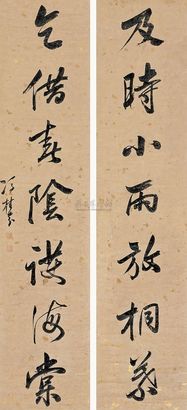 及時小雨放桐葉
乞借春陰護海棠
馮桂芬